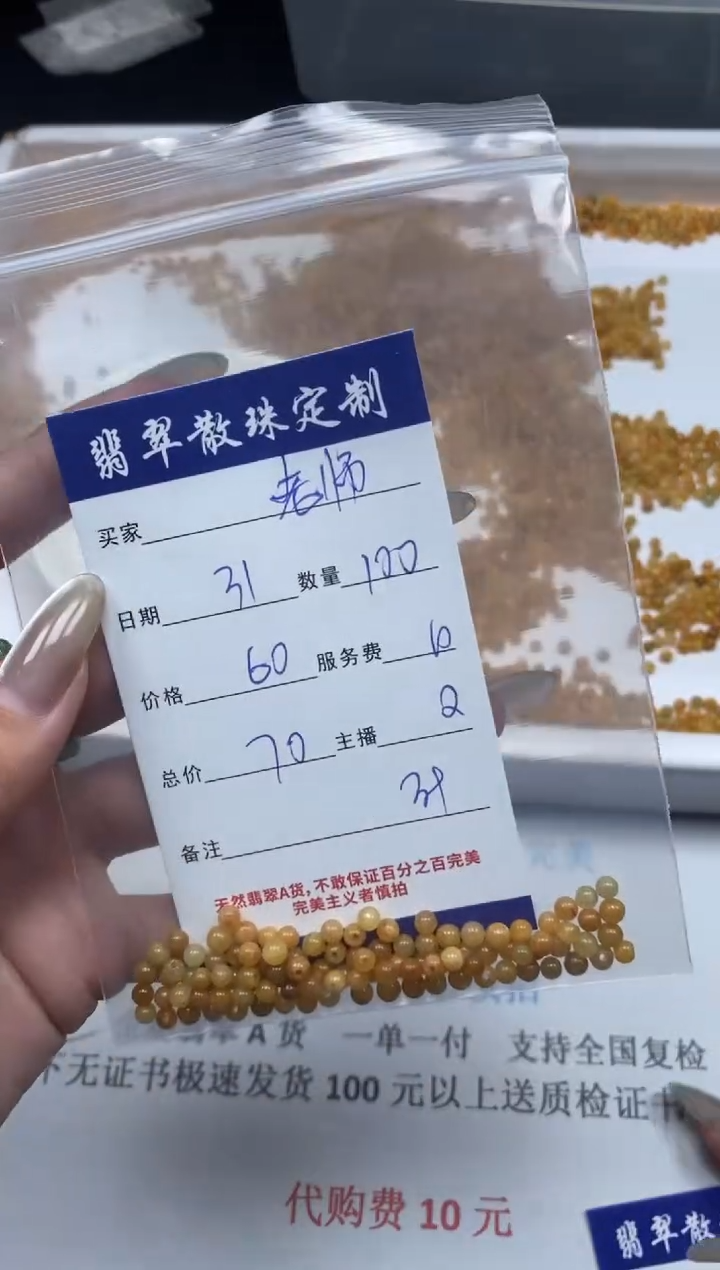 翡翠散珠定制
买家 老师
日期 31 数量 100
价格 60 服务费 10
总价 70 主播 2
备注
天然翡翠A货,不敢保证百分之百完美
完美主义者慎拍
完美
A货 一单一付 支持全国复检
下无证书极速发货100元以上送质检证书
代购费10元
翡翠散